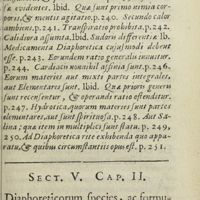 sæ evidentes. Ibid. Quæ sunt primo nimia cor-
poris, & mentis agitatio. p. 240. Secundo calor
ambiens. p. 241. Transpiratio prohibita. p. 242.
Calidiora assumta. Ibid. Sudoru differetiæ Ib.
Medicamenta Diaphoretica cujusmodi debeant
esse. p. 243. Eorundem ratio generalis innuitur.
p. 244. Cardiacis nonnihil affinia sunt. p. 246.
Eorum materies aut mixti partes integrales,
aut Elementares sunt. Ibid. Quæ prioris generis
sunt recensentur, & operandi ratio ostenditur.
p. 247. Hydrotica quorum materies sunt partes
elementares, aut sunt spirituosa. p. 248. Aut Sa-
lina; quæ item in multiplici sunt statu. p. 249,
250. Ad Diaphoretica rite exhibenda quo appa-
ratu, & quibus circumstantiis opus est. p. 251.
SECT. V. CAP. II.
Diaphoreticorum species, ac formu-